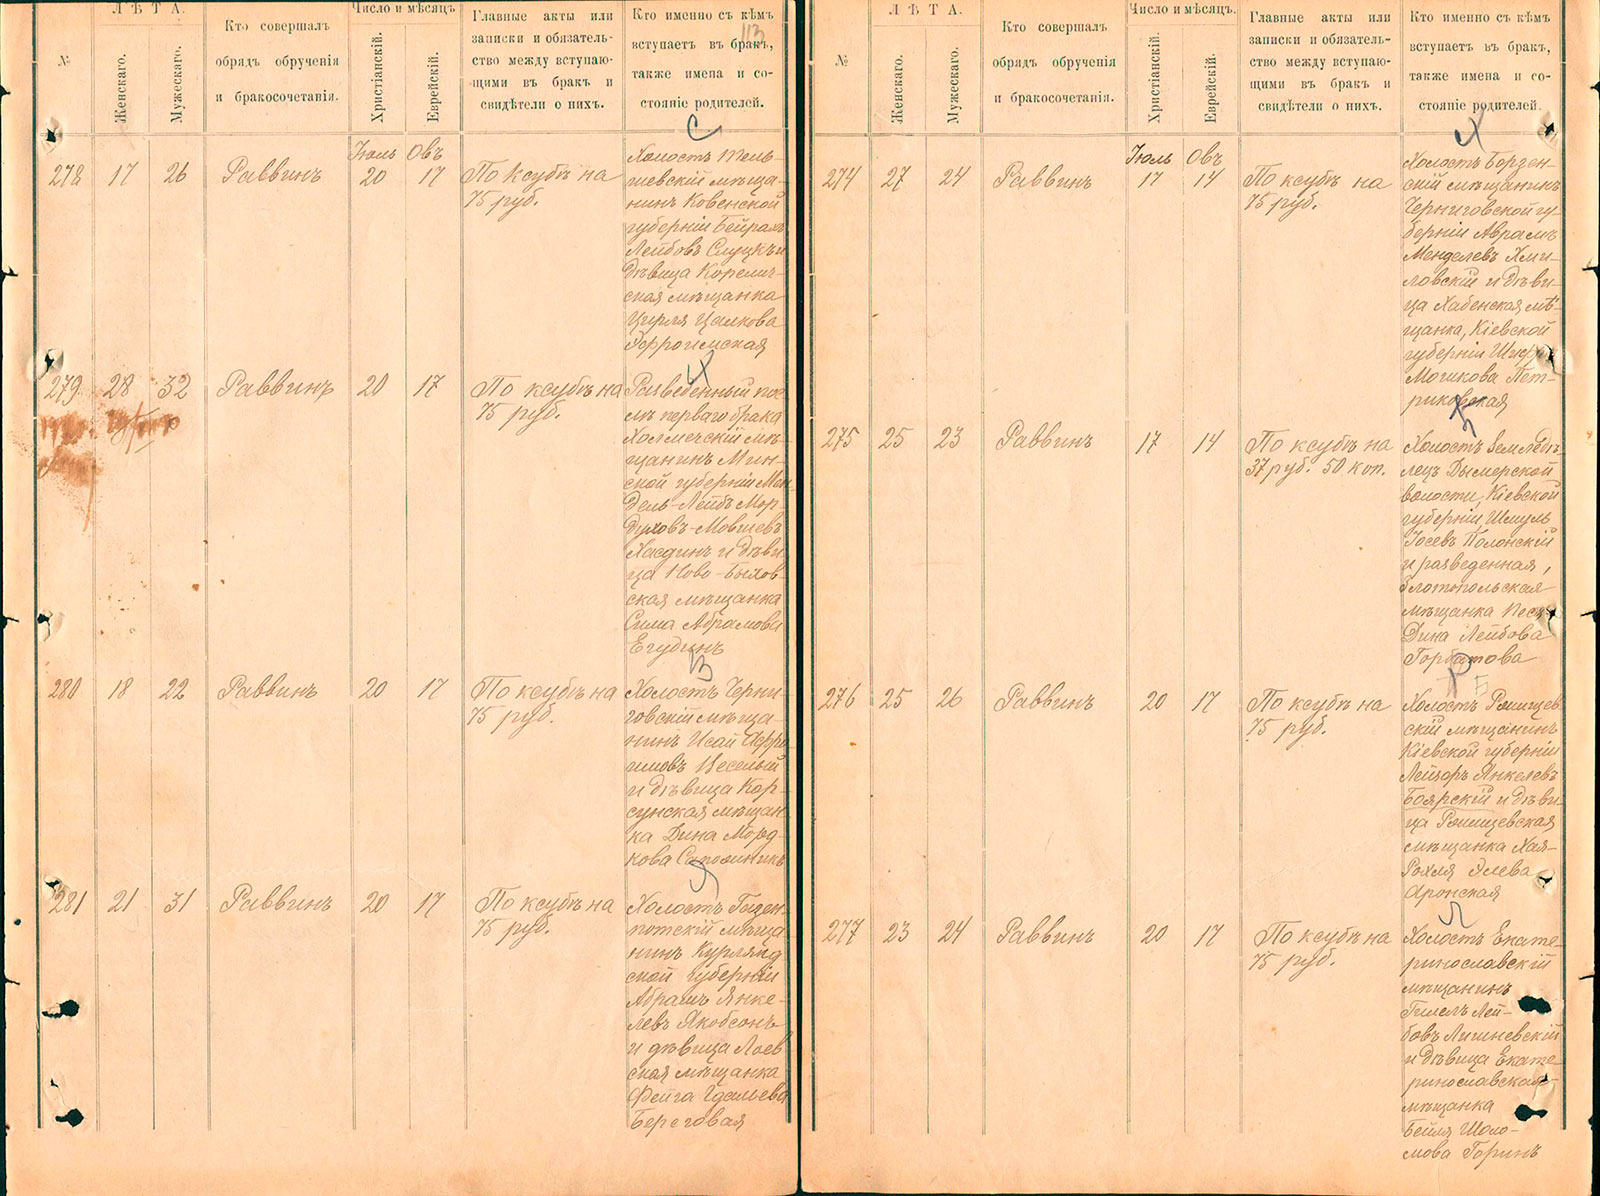 113
ЛѢТА.
Число и мѣсяцъ
№
Женскаго.
Мужескаго.
Кто совершалъ
обрядъ обрученія
и бракосочетанія.
Христіанскій.
Еврейскій.
Главные акты или
записки и обязатель-
ство между вступаю-
щими въ бракъ и
свидѣтели о нихъ.
Кто именно съ кѣмъ
вступаетъ въ бракъ,
также имена и со-
стояніе родителей.
С
Іюль Овъ
278 17 26 Раввинъ 20 17 По ксубѣ на
75 руб.
Холостъ Тель-
шевскій мѣща-
нинъ Ковенской
губерніи Бейрахъ
Лейбовъ Слуцкъ и
дѣвица Корелич-
ская мѣщанка
Цирля Цалкова
Эфроимская
Х
279 28 32 Раввинъ 20 17 По ксубѣ на
75 руб.
Разведенный пос-
лѣ перваго брака
Холмечскій мѣ-
щанинъ Мин-
ской губерніи Мен-
дель-Лейбъ Мор-
духовъ-Мовшевъ
Хасдинъ и дѣви-
ца Ново-Быхов-
ская мѣщанка
Сима Абрамова
Егудинъ
В
280 18 22 Раввинъ 20 17 По ксубѣ на
75 руб.
Холостъ Черни-
говскій мѣща-
нинъ Исай Афро-
имовъ Веселый
и дѣвица Кор-
сунская мѣщан-
ка Дина Морд-
кова Сапожникъ
Я
281 21 31 Раввинъ 20 17 По ксубѣ на
75 руб.
Холостъ Газен-
потскій мѣща-
нинъ Курлянд
ской губерніи
Абрамъ Янке-
левъ Якобсонъ
и дѣвица Лоев
ская мѣщанка
Фейга Гдальева
Береговая
ЛѢТА.
Число и мѣсяцъ.
№
Женскаго.
Мужескаго.
Кто совершалъ
обрядъ обрученія
и бракосочетанія.
Христіанскій.
Еврейскій.
Главные акты или
записки и обязатель-
ство между вступаю-
щими въ бракъ и
свидѣтели о нихъ.
Кто именно съ кѣмъ
вступаетъ въ бракъ,
также имена и со-
стояніе родителей.
Х
Іюль Овъ
274 27 24 Раввинъ 17 14 По ксубѣ на
75 руб.
Холостъ Борзен-
скій мѣщанинъ
Черниговской гу-
берніи Аврамъ
Менделевъ Хми-
ловскій и дѣви-
ца Хабенская мѣ-
щанка, Кіевской
губерніи
Мошкова Пет-
риковская
275 25 23 Раввинъ 17 14 По ксубѣ на
37 руб. 50 коп.
Холостъ Земледѣ-
лецъ Дымерской
волости, Кіевской
губерніи, Шмуль
Іосевъ Полонскій
и разведенная,
Златопольская
мѣщанка Песя-
Дина Лейбова
Горбатова
Р Б
276 25 26 Раввинъ 20 17 По ксубѣ на
75 руб.
Холостъ Ржищев
скій мѣщанинъ
Кіевской губерніи
Лейзоръ Янкелевъ
Боярскій и дѣви-
ца Ржищевская
мѣщанка Хая-
Рохля Элева
Аронская
Л
277 23 24 Раввинъ 20 17 По ксубѣ на
75 руб.
Холостъ Екате-
ринославскій
мѣщанинъ
Гилелъ Лей-
бовъ Лишневскій
и дѣвица Екате-
ринославская
мѣщанка
Бейля Шоло-
мова Горинъ